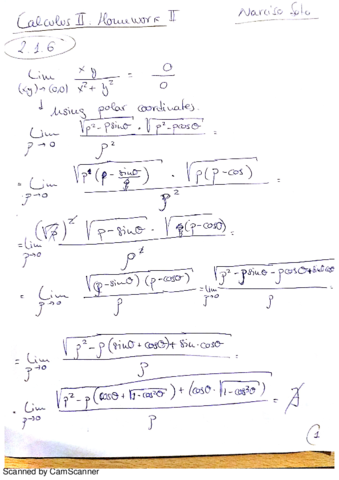 Calculus II. Homework II
2.1.6
Lim (x,y)→(0,0) xy / x²+y² = 0/0
↓ using polar coordinates.
Lim ρ→0 √(ρ²-ρsinθ) · √(ρ²-ρcosθ) / ρ² =
= Lim ρ→0 · √(ρ(ρ-cos)) / ρ² =
= lim ρ→0 (√ρ)² √(ρ-sinθ) · / ρ² =
= Lim ρ→0 √((ρ-sinθ)(ρ-cosθ)) / ρ = lim ρ→0 √(ρ²-ρsinθ-ρcosθ+sinθcosθ) / ρ
= lim ρ→0 √(ρ²-ρ(sinθ+cosθ)+sin·cosθ) / ρ =
· Lim ρ→0 √(ρ²-ρ(cosθ+√(1-cos²θ))+(cosθ·√(1-cos²θ))) / ρ = ∄
(1
Scanned by CamScanner